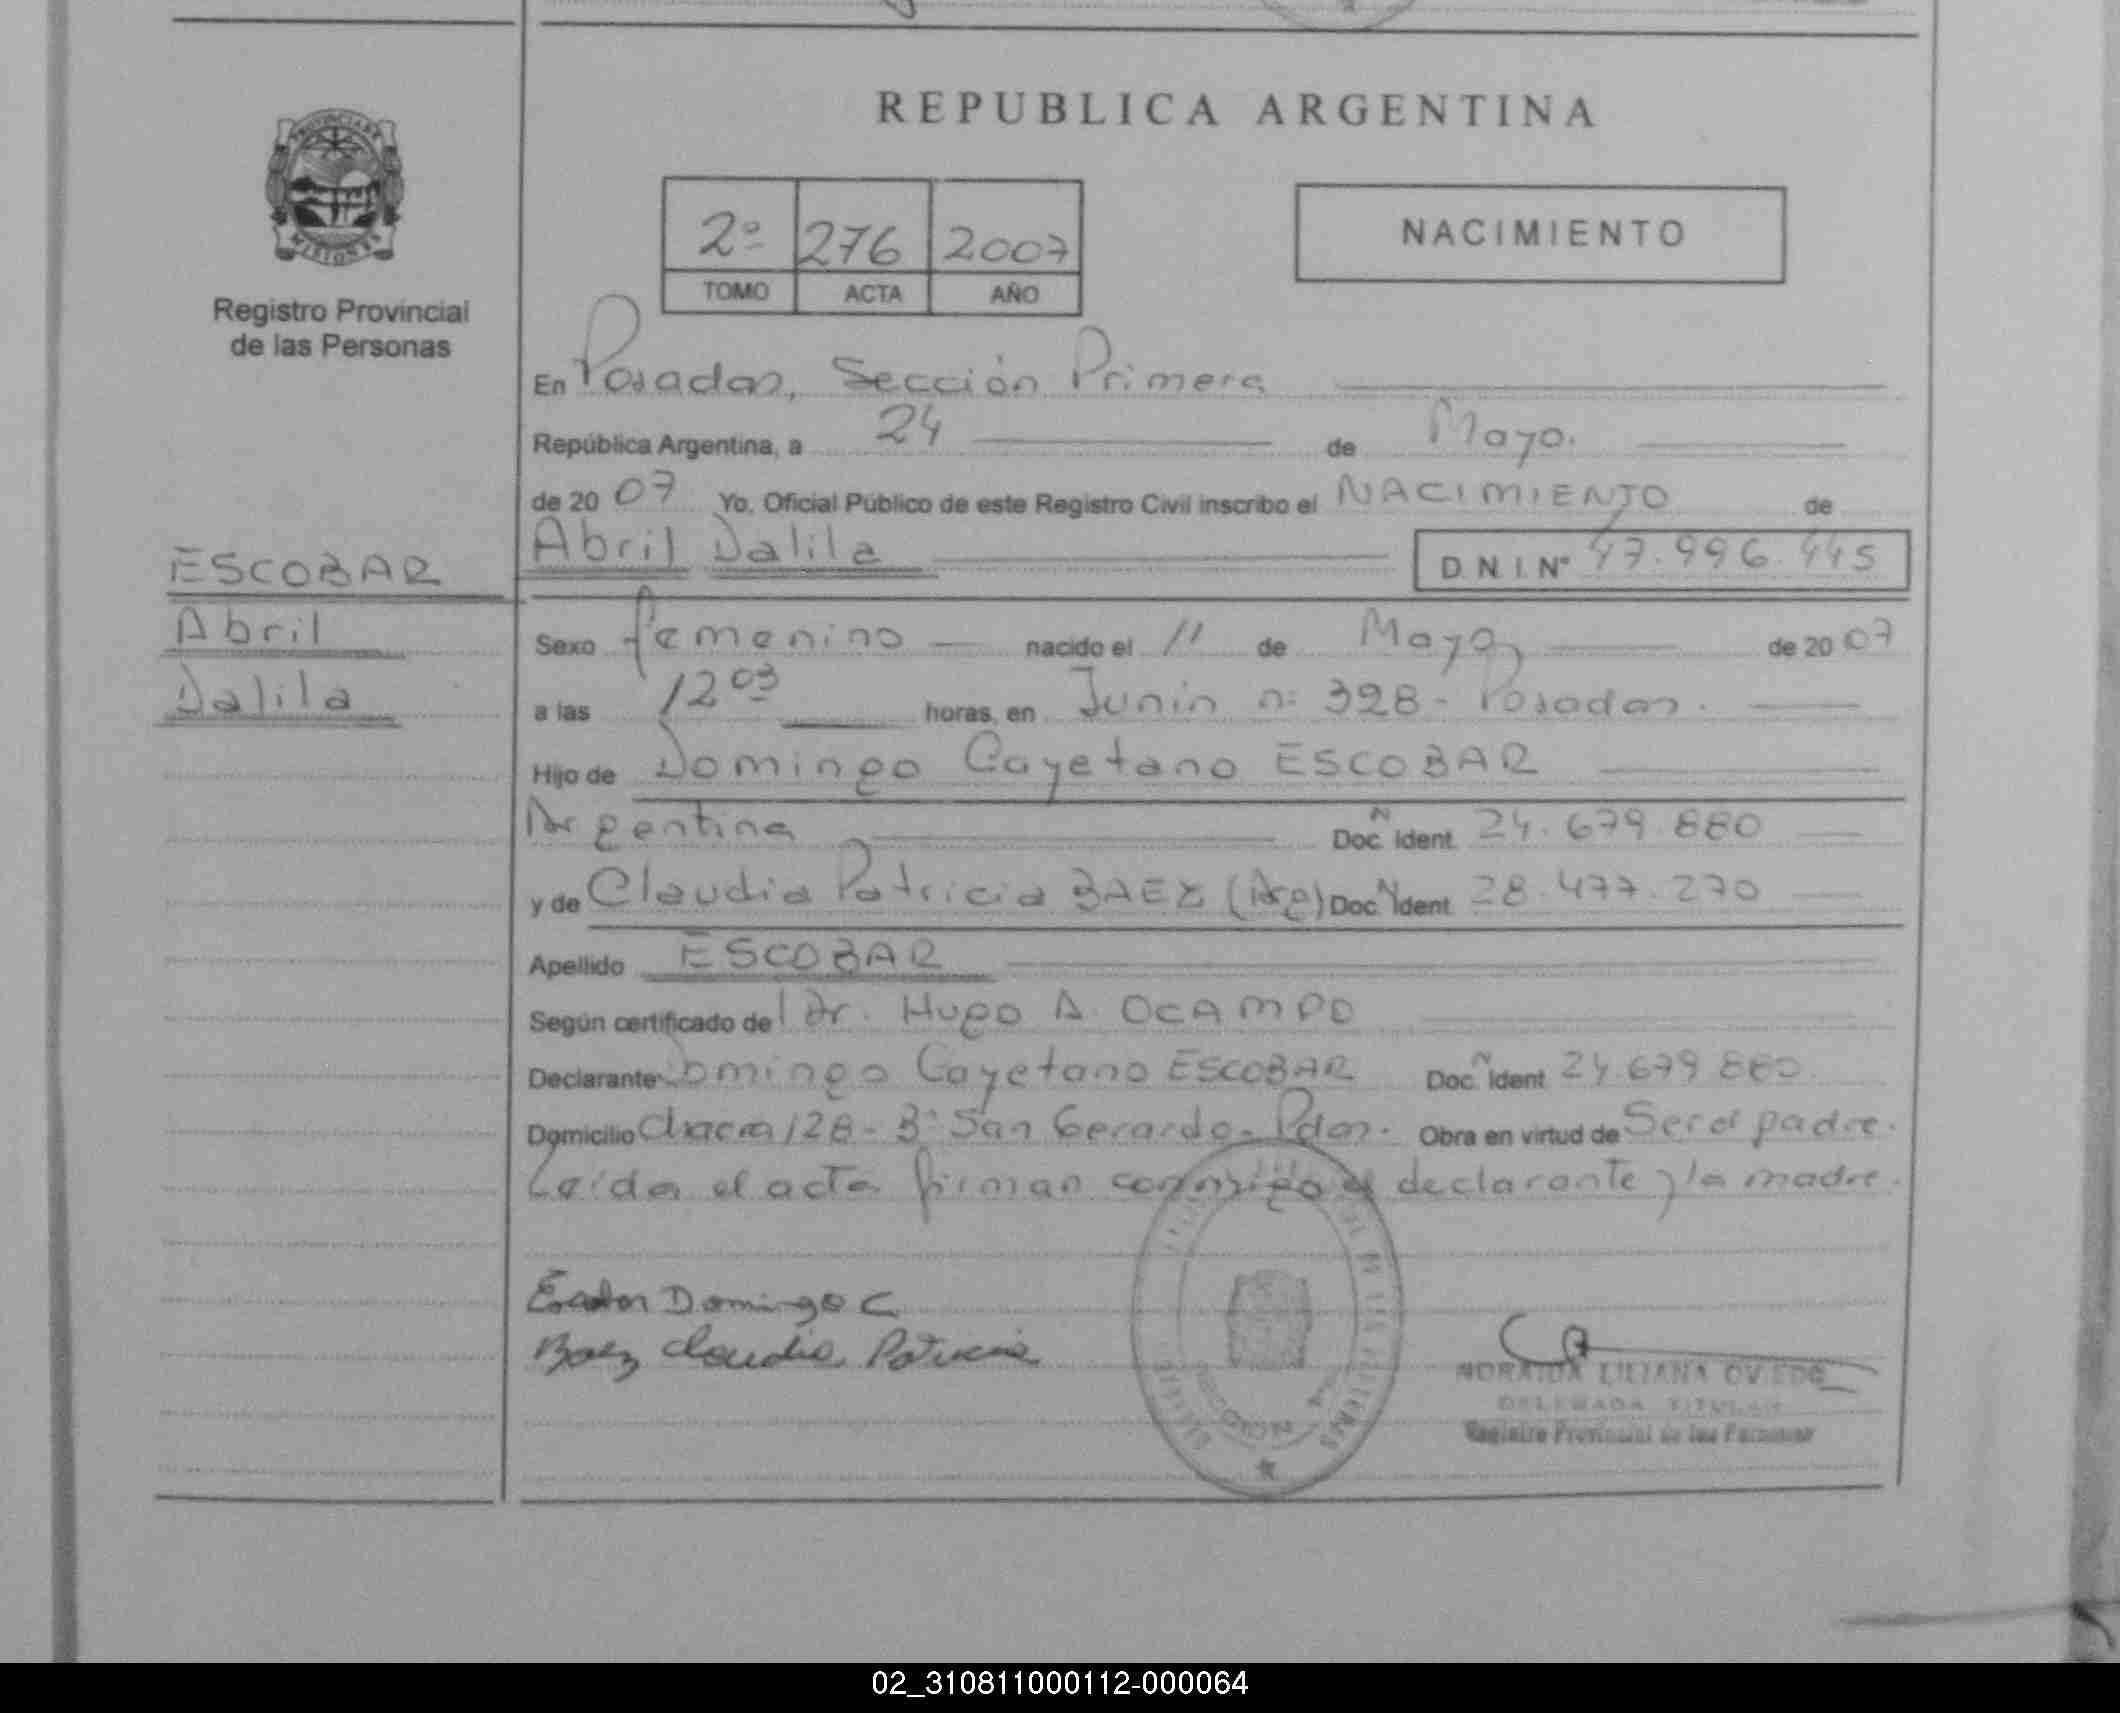 REPUBLICA ARGENTINA
PROVINCIA DE
MISIONES
Registro Provincial
de las Personas
2º 276 2007
TOMO ACTA AÑO
NACIMIENTO
En Posadas, Sección Primera
República Argentina, a 24 de Mayo.
de 2007 Yo, Oficial Público de este Registro Civil inscribo el NACIMIENTO de
Abril Dalila D.N.I. Nº 47.996.445
ESCOBAR
Abril
Dalila
Sexo femenino nacido el 11 de Mayo de 2007
a las 12 03 horas, en Junin n: 328 - Posadas.
Hijo de Domingo Cayetano ESCOBAR
Argentina Doc. N Ident. 24.679.880
y de Claudia Patricia BAEZ (Arg) Doc. N Ident. 28.477.270
Apellido ESCOBAR
Según certificado del Dr. Hugo A. OCAMPO
Declarante Domingo Cayetano ESCOBAR Doc. N Ident 24.679.880.
Domicilio Chacra 128 - Bº San Gerardo - Pdas. Obra en virtud de Ser el padre.
Leída el acta firman conmigo el declarante y la madre.
Escobar Domingo C
Baez Claudia Patricia
NORAIDA LILIANA OVIEDO
DELEGADA TITULAR
Registro Provincial de las Personas
02_310811000112-000064